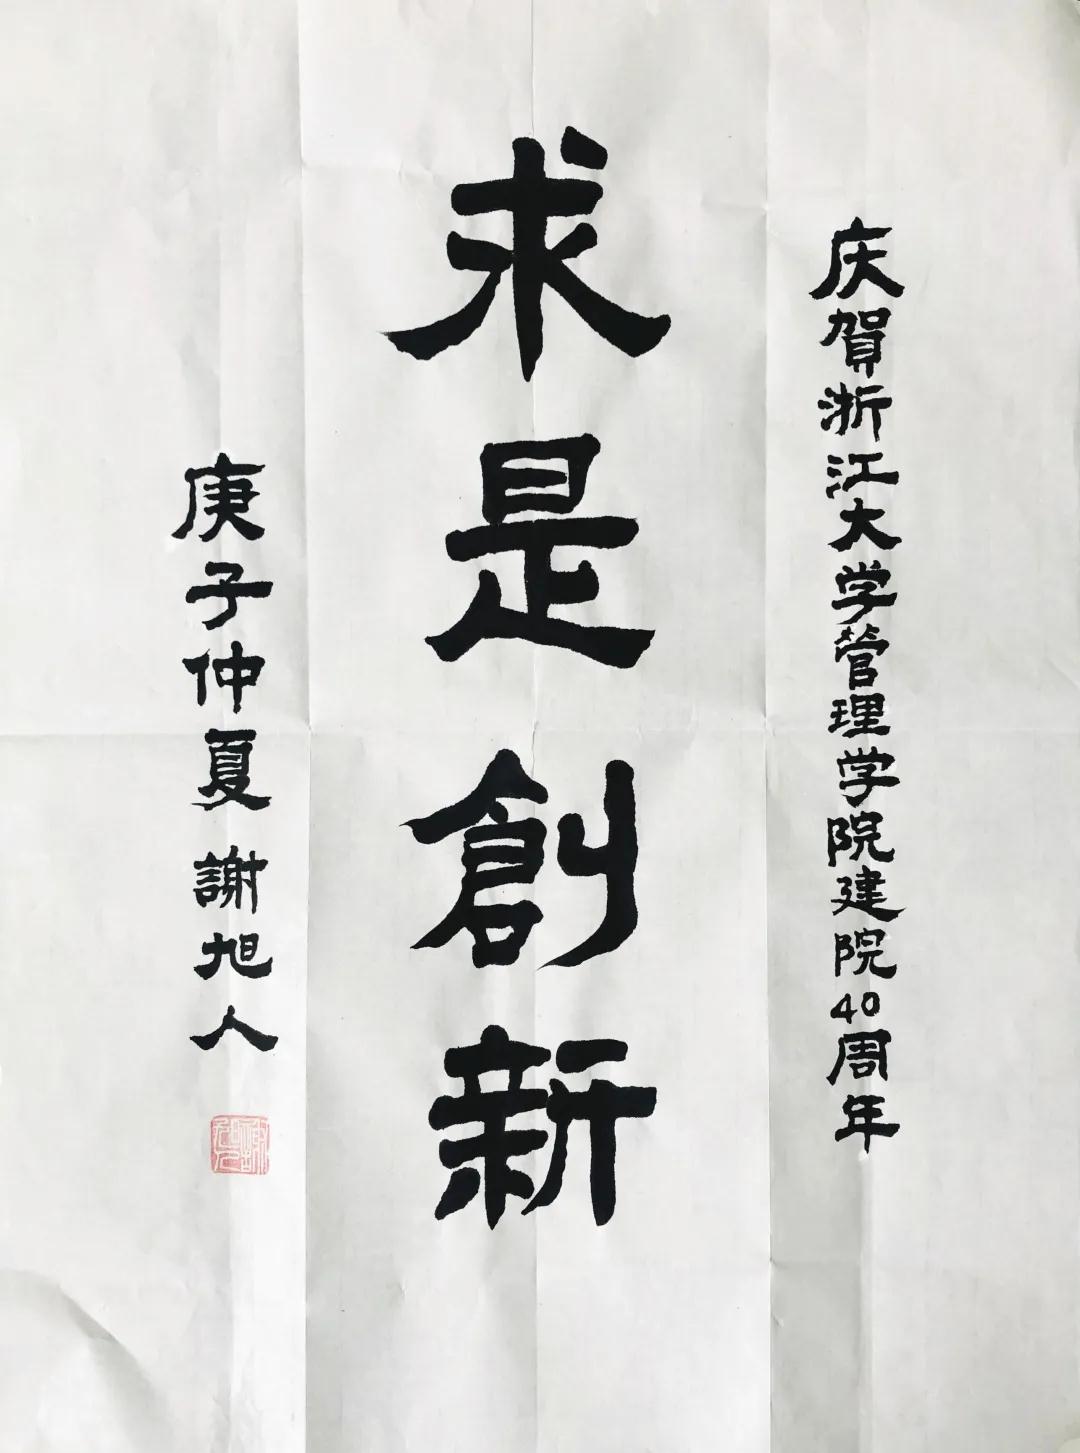 庆賀浙江大学管理学院建院40周年
求是創新
庚子仲夏 謝旭人